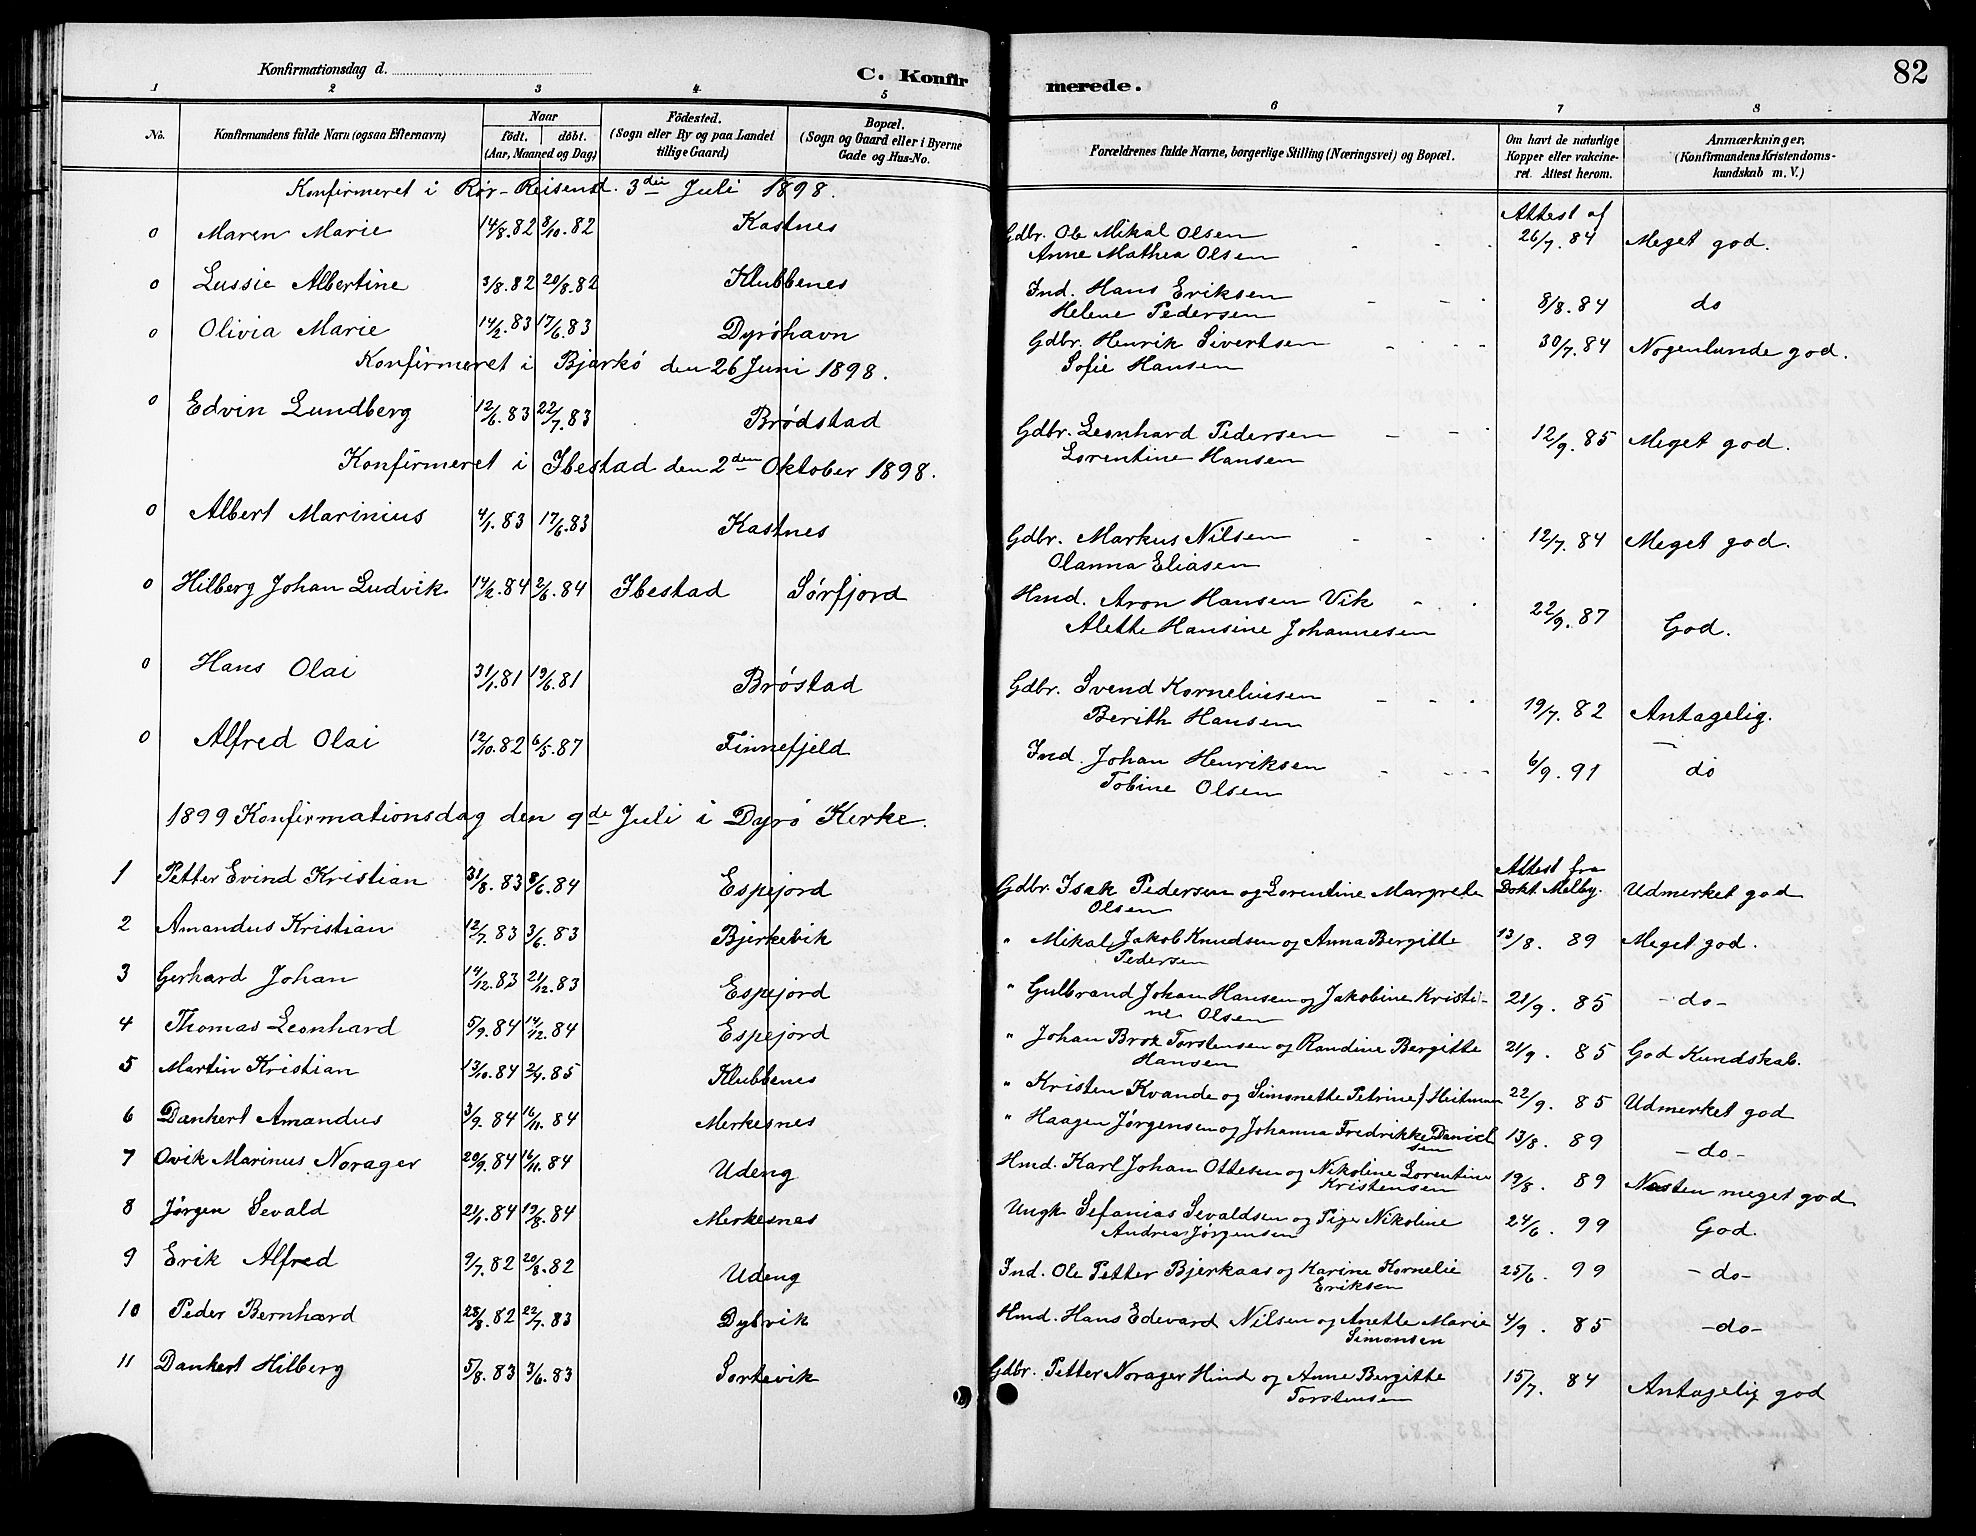 Konfirmationsdag d.
C. Konfir
merede.
82
1 2 3 4 5 6 7 8
No.
Konfirmandens fulde Navn (ogsaa Efternavn)
Naar
födt. döbt.
(Aar, Maaned og Dag)
Födested.
(Sogn eller By og paa Landet
tillige Gaard)
Bopæl.
(Sogn og Gaard eller i Byerne
Gade og Hus-No.
Forældrenes fulde Navne, borgerlige Stilling (Næringsvei) og Bopæl.
Om havt de naturlige
Kopper eller vakcine-
ret. Attest herom.
Anmærkninger,
(Konfirmandens Kristendoms-
kundskab m. V.)
Konfirmeret i Rør-Reisensd. 3die Juli 1898.
Attest af
o Maren Marie 14/8.82 8/10.82 Kastnes Gdbr. Ole Mikal Olsen 26/7.84 Meget god.
Anne Mathea Olsen
o Lussie Albertine 3/8.82 20/8.82 Klubbenes Ind. Hans Eriksen 8/8.84 do
Helene Pedersen
o Olivia Marie 14/2.83 17/6.83 Dyröhavn Gdbr. Henrik Sivertsen 30/7.84 Nogenlunde god.
Sofie Hansen
Konfirmeret i Bjarkö den 26 Juni 1898.
o Edvin Lundberg 12/6.83 22/7.83 Brödstad Gdbr. Leonhard Pedersen 12/9.85 Meget god.
Lorentine Hansen
Konfirmeret i Ibestad den 2den Oktober 1898.
o Albert Marinius 4/1.83 17/6.83 Kastnes Gdbr. Markus Nilsen 12/7.84 Meget god.
Olanna Eliasen
o Hilberg Johan Ludvik 14/2.84 2/6.84 Ibestad Sørfjord Hmd. Aron Hansen Vik 22/9.87 God.
Alette Hansine Johannesen
o Hans Olai 31/1.81 19/6.81 Bröstad Gdbr. Svend Korneliusen 19/7.82 Antagelig.
Berith Hansen
o Alfred Olai 12/10.82 6/5.87 Finnefjeld Ind. Johan Henriksen 6/9.91 do
Tobine Olsen
1899 Konfirmationsdag den 9de Juli i Dyrö Kirke.
Attest fra
1 Petter Evind Kristian 31/8.83 8/6.84 Espejord Gdbr. Isak Pedersen og Lorentine Margrete Dokt. Melby. Udmerket god
Olsen
2 Amandus Kristian 12/7.83 3/6.83 Bjerkevik " Mikal Jakob Knudsen og Anna Bergitte 13/8. 89 Meget god.
Pedersen
3 Gerhard Johan 14/12.83 21/12.83 Espejord " Gulbrand Johan Hansen og Jakobine Kristi- 21/9. 85 -do-
ne Olsen
4 Thomas Leonhard 5/9.84 14/12.84 Espejord " Johan Brox Torstensen og Randine Bergitte 21/9. 85 God Kundskab.
Hansen
5 Martin Kristian 13/10.84 2/4.85 Klubbenes " Kristen Kvande og Simonette Petrine f Heitman 22/9. 85 Udmerket god
6 Dankert Amandus 3/9.84 16/11.84 Merkesnes " Haagen Jørgensen og Johanna Fredrikke Daniel 13/8. 89 -do-
sen
7 Ovik Marinus Norager 20/9.84 16/11.84 Udeng Hmd. Karl Johan Ottesen og Nikoline Lorentine 19/8. 89 Næsten meget god
Kristensen
8 Jørgen Sevald 21/1.84 19/8.84 Merkesnes Ungk Sefanias Sevaldsen og Pige Nikoline 24/6 99 God.
Andrea Jørgensen
9 Erik Alfred 9/7.82 20/8.82 Udeng Ind. Ole Petter Bjerkaas og Karine Kornelie 25/6. 99 -do-
Eriksen
10 Peder Bernhard 28/8.82 22/7.83 Dybvik Hmd. Hans Edevard Nilsen og Anette Marie 4/9. 85 -do-
Simonsen
11 Dankert Hilberg 5/8.83 3/6.83 Sortevik Gdbr. Petter Norager Hind og Anne Bergitte 15/7. 84 Antagelig god
Torstensen